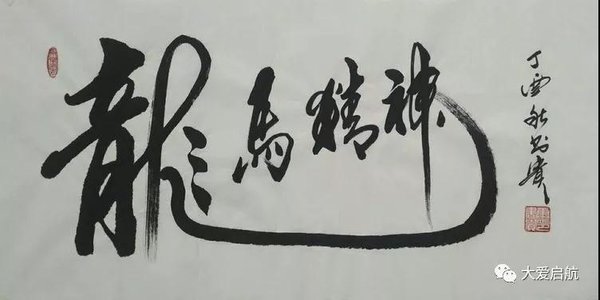 龍馬精神
丁酉秋
大爱启航